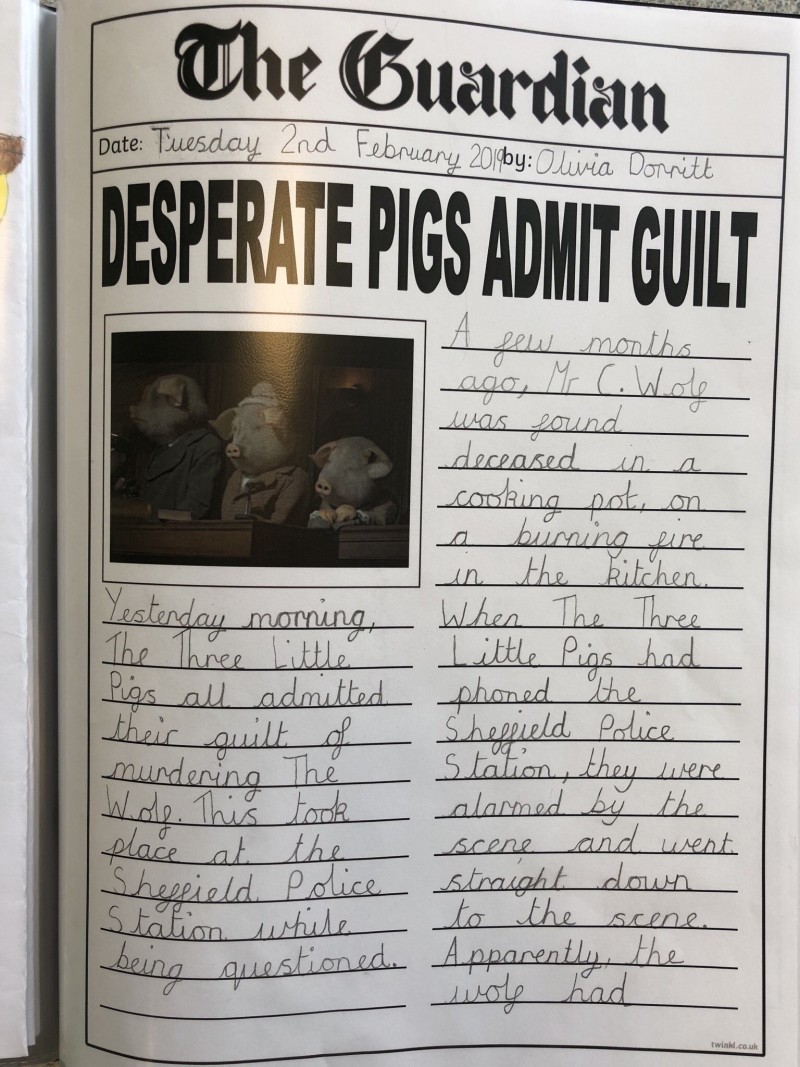 The Guardian
Date: Tuesday 2nd February 2019 by: Olivia Dorritt
DESPERATE PIGS ADMIT GUILT
Yesterday morning,
The Three Little
Pigs all admitted
their guilt of
murdering The
Wolf. This took
place at the
Sheffield Police
Station while
being questioned.
A few months
ago, Mr C. Wolf
was found
deceased in a
cooking pot, on
a burning fire
in the kitchen.
When The Three
Little Pigs had
phoned the
Sheffield Police
Station, they were
alarmed by the
scene and went
straight down
to the scene.
Apparently, the
wolf had
twinkl.co.uk